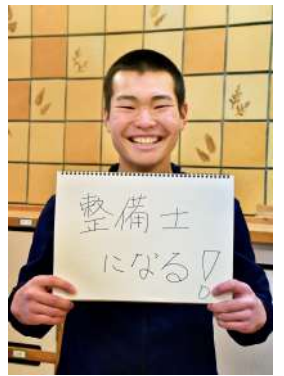 整備士
になる!